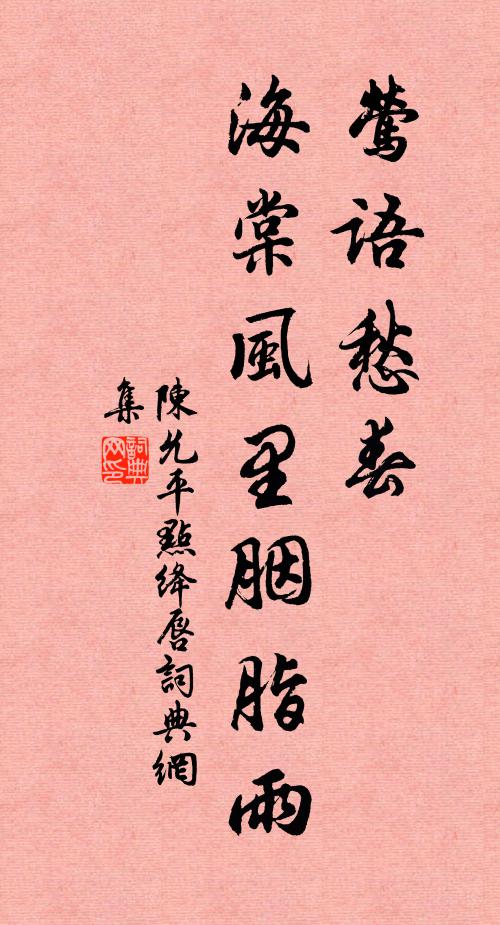 鶯語愁春
海棠風里胭脂雨
陳允平點绛唇詞典網
集
詞典網印